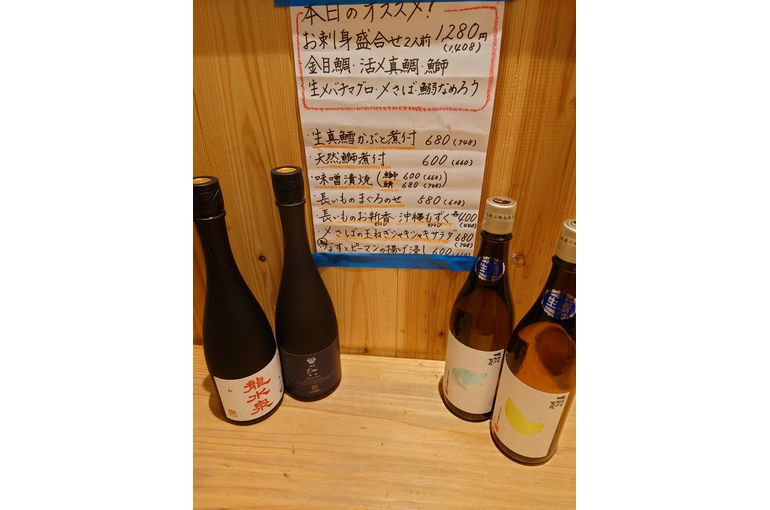 本日のオススメ!
お刺身盛合せ2人前1280円
(1,408)
金目鯛・活〆真鯛・鰤
生メバチマグロ・〆さば・鰯なめろう
・生真鱈かぶと煮付 680(748)
・天然鰤煮付 600(660)
・味噌漬焼(鰤 600(660)
鯖 680(748)
・長いものまぐろのせ 580(638)
・長いものお新香・沖縄もずく各400
(440)
・〆さばの玉ねぎシャキシャキサラダ 680
(748)
なすとピーマンの揚げ浸し 600
龍水泉
生酒
生酒